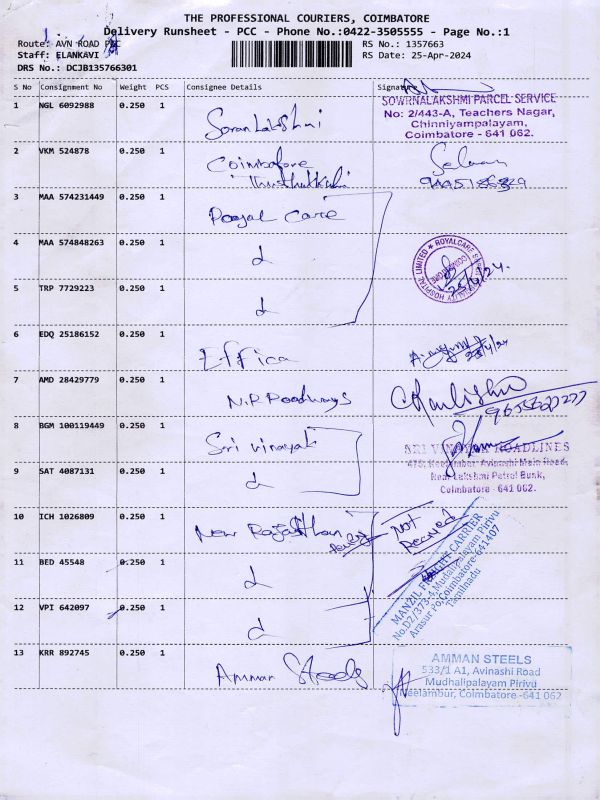 THE PROFESSIONAL COURIERS, COIMBATORE
Delivery Runsheet - PCC - Phone No.:0422-3505555 - Page No.:1
Route: AVN ROAD
RS No.: 1357663
Staff: ELANKAVI
RS Date: 25-Apr-2024
DRS No.: DCJB135766301
S No Consignment No Weight PCS Consignee Details Signature
1 NGL 6092988 0.250 1
SOWRNALAKSHMI PARCEL SERVICE
No: 2/443-A, Teachers Nagar,
Chinniyampalayam,
Coimbatore - 641 062.
2 VKM 524878 0.250 1 Coimbatore
3 MAA 574231449 0.250 1 Care
4 MAA 574848263 0.250 1
ROYALCARE HOSPITAL LIMITED
5 TRP 7729223 0.250 1
6 EDQ 25186152 0.250 1 Effica
7 AMD 28429779 0.250 1 N.R Roadways
8 BGM 100119449 0.250 1 Sri Vinayak
SRI VINAYAK ROADLINES
Avinashi Main Road,
Near Lakshmi Petrol Bunk,
Coimbatore - 641 062.
9 SAT 4087131 0.250 1
10 ICH 1026809 0.250 1 New Rajasthan
Not
MANZIL FREIGHT CARRIER
No.D2/373-4,Mudalipalayam Pirivu
Arasur Po,Coimbatore-641407
Tamilnadu
11 BED 45548 0.250 1
12 VPI 642097 0.250 1
13 KRR 892745 0.250 1 Amman Steels
AMMAN STEELS
533/1 A1, Avinashi Road
Mudhalipalayam Pirivu
Neelambur, Coimbatore -641 062